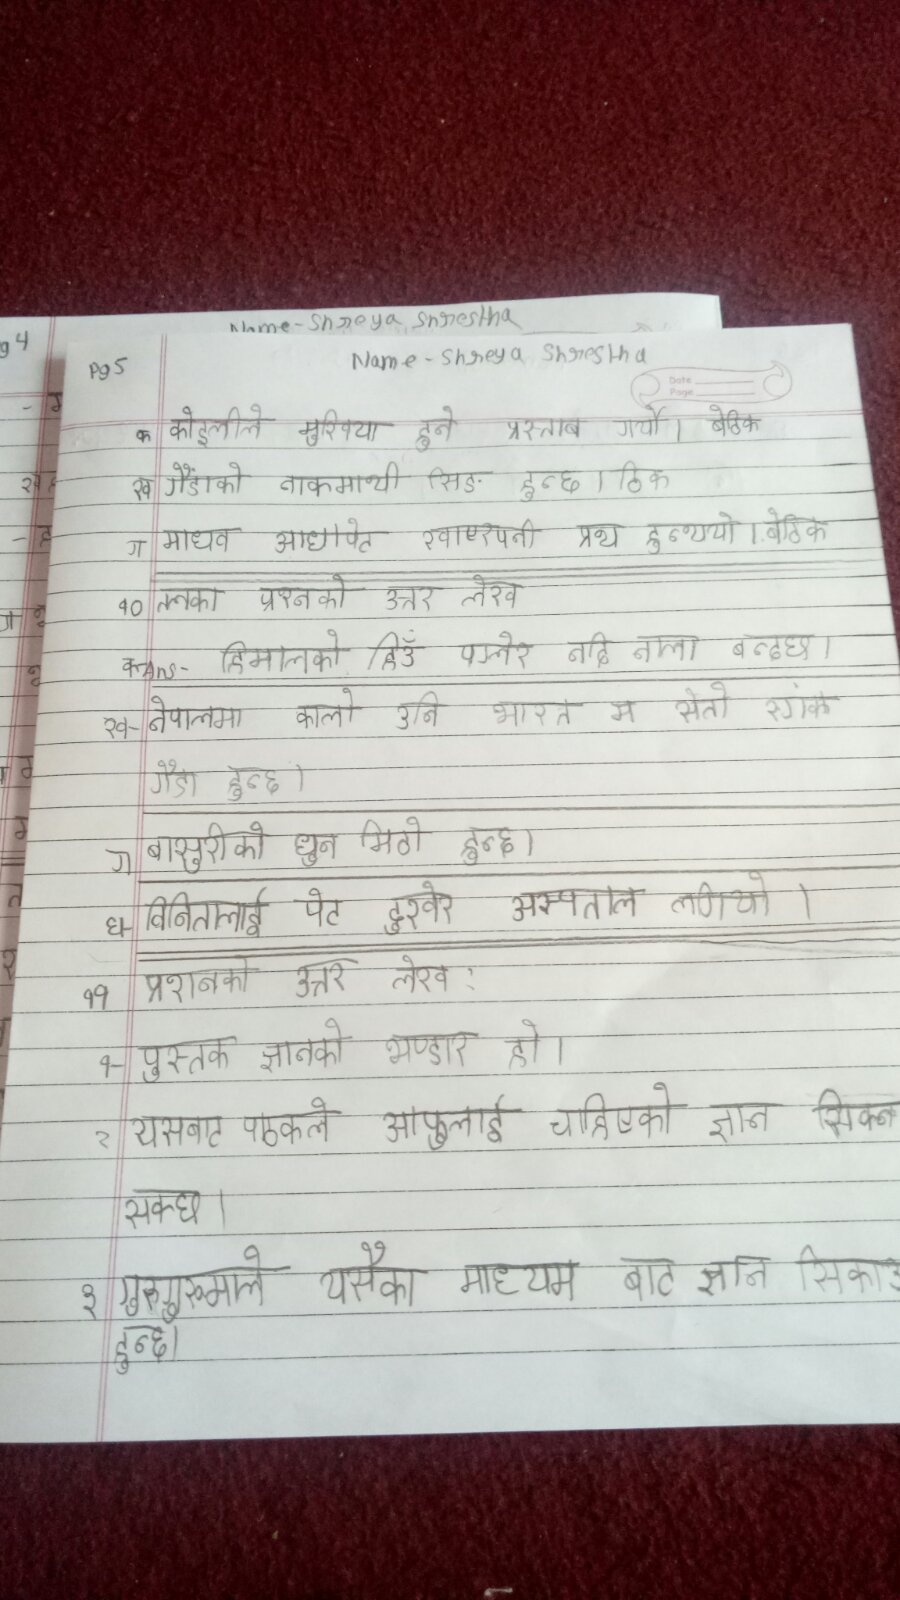 g 4
Name - Shreya Shrestha
Pg 5
Name - Shreya Shrestha
Date
Page
क कोइलीले मुखिया हुने प्रस्ताब गर्यो। बेठिक
ख गैंडाको नाकमाथी सिङ हुन्छ। ठिक
ग माधव आधापेट हुन्थ्यो। बेठिक
१० तलका प्रश्नको उत्तर लेख
क Ans- हिमालको हिउँ पग्लेर नदि नाला बन्दछ।
ख- नेपालमा कालो उनि भारत म सेतो
गैंडा हुन्छ।
ग बासुरीको धुन मिठो हुन्छ।
घ- विनितालाई पेट दुखेर अस्पताल लगियो।
११ प्रशनको उत्तर लेख:
१- पुस्तक ज्ञानको भण्डार हो।
२ यसबाट पाठकले आफुलाई चाहिएको ज्ञान सिक्न
सक्छ।
३ गुरुगुरुमाले यसैका माध्यम बाट ज्ञान सिकाउ
हुन्छ।